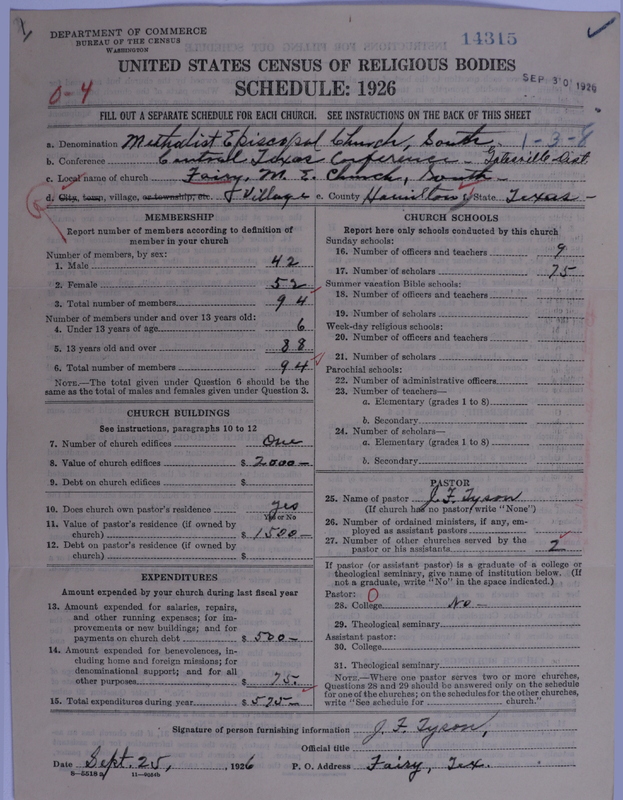 DEPARTMENT OF COMMERCE
BUREAU OF THE CENSUS
WASHINGTON
14315
UNITED STATES CENSUS OF RELIGIOUS BODIES
SEP 30 1926
0-4
SCHEDULE: 1926
FILL OUT A SEPARATE SCHEDULE FOR EACH CHURCH. SEE INSTRUCTIONS ON THE BACK OF THIS SHEET
a. Denomination Methodist Episcopal Church, South. 1-3-8
b. Conference Central Texas Conference - Gatesville Dist.
c. Local name of church Fairy, M. E. Church, South -
d. City, town, village, or township, etc. Village e. County Hamilton f. State Texas -
MEMBERSHIP
Report number of members according to definition of member in your church
Number of members, by sex:
1. Male 42
2. Female 52
3. Total number of members 94
Number of members under and over 13 years old:
4. Under 13 years of age 6
5. 13 years old and over 88
6. Total number of members 94
NOTE.—The total given under Question 6 should be the same as the total of males and females given under Question 3.
CHURCH BUILDINGS
See instructions, paragraphs 10 to 12
7. Number of church edifices One
8. Value of church edifices $ 2000 -
9. Debt on church edifices $
10. Does church own pastor's residence yes
Yes or No
11. Value of pastor's residence (if owned by church) $ 1500 -
12. Debt on pastor's residence (if owned by church) $
EXPENDITURES
Amount expended by your church during last fiscal year
13. Amount expended for salaries, repairs, and other running expenses; for improvements or new buildings; and for payments on church debt $ 500 -
14. Amount expended for benevolences, including home and foreign missions; for denominational support; and for all other purposes $ 75.
15. Total expenditures during year $ 575 -
CHURCH SCHOOLS
Report here only schools conducted by this church
Sunday schools:
16. Number of officers and teachers 9
17. Number of scholars 75
Summer vacation Bible schools:
18. Number of officers and teachers
19. Number of scholars
Week-day religious schools:
20. Number of officers and teachers
21. Number of scholars
Parochial schools:
22. Number of administrative officers
23. Number of teachers—
a. Elementary (grades 1 to 8)
b. Secondary
24. Number of scholars—
a. Elementary (grades 1 to 8)
b. Secondary
PASTOR
25. Name of pastor J. F. Tyson
(If church has no pastor, write "None")
26. Number of ordained ministers, if any, employed as assistant pastors
27. Number of other churches served by the pastor or his assistants 2
If pastor (or assistant pastor) is a graduate of a college or theological seminary, give name of institution below. (If not a graduate, write "No" in the space indicated.)
Pastor: 0
28. College No -
29. Theological seminary
Assistant pastor:
30. College
31. Theological seminary
NOTE.—Where one pastor serves two or more churches, Questions 28 and 29 should be answered only on the schedule for one of the churches; on the schedules for the other churches, write "See schedule for church."
Signature of person furnishing information J. F. Tyson,
Official title
Date Sept. 25, 1926 P. O. Address Fairy, Tex.